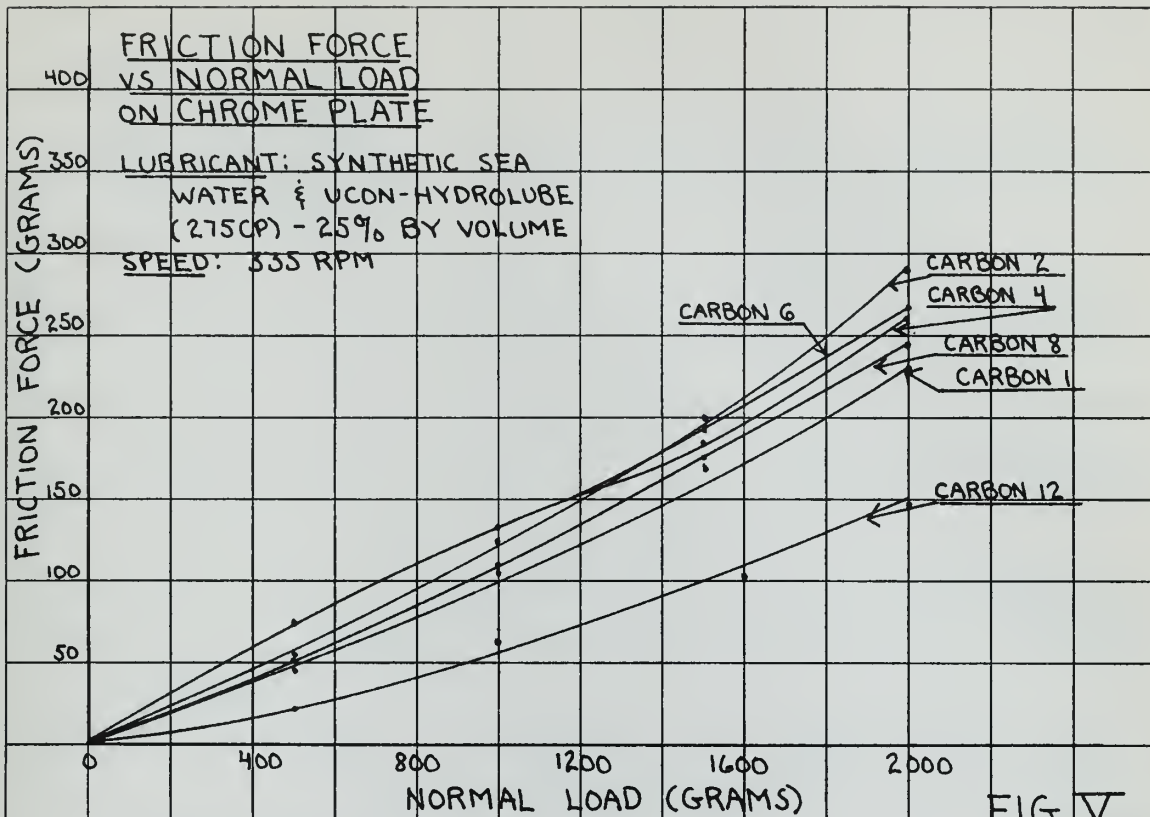 FRICTION FORCE
VS NORMAL LOAD
ON CHROME PLATE
LUBRICANT: SYNTHETIC SEA
WATER & UCON-HYDROLUBE
(275CP) - 25% BY VOLUME
SPEED: 335 RPM
FRICTION FORCE (GRAMS)
400
350
300
250
200
150
100
50
CARBON 2
CARBON 4
CARBON 6
CARBON 8
CARBON 1
CARBON 12
0 400 800 1200 1600 2000
NORMAL LOAD (GRAMS)
FIG V